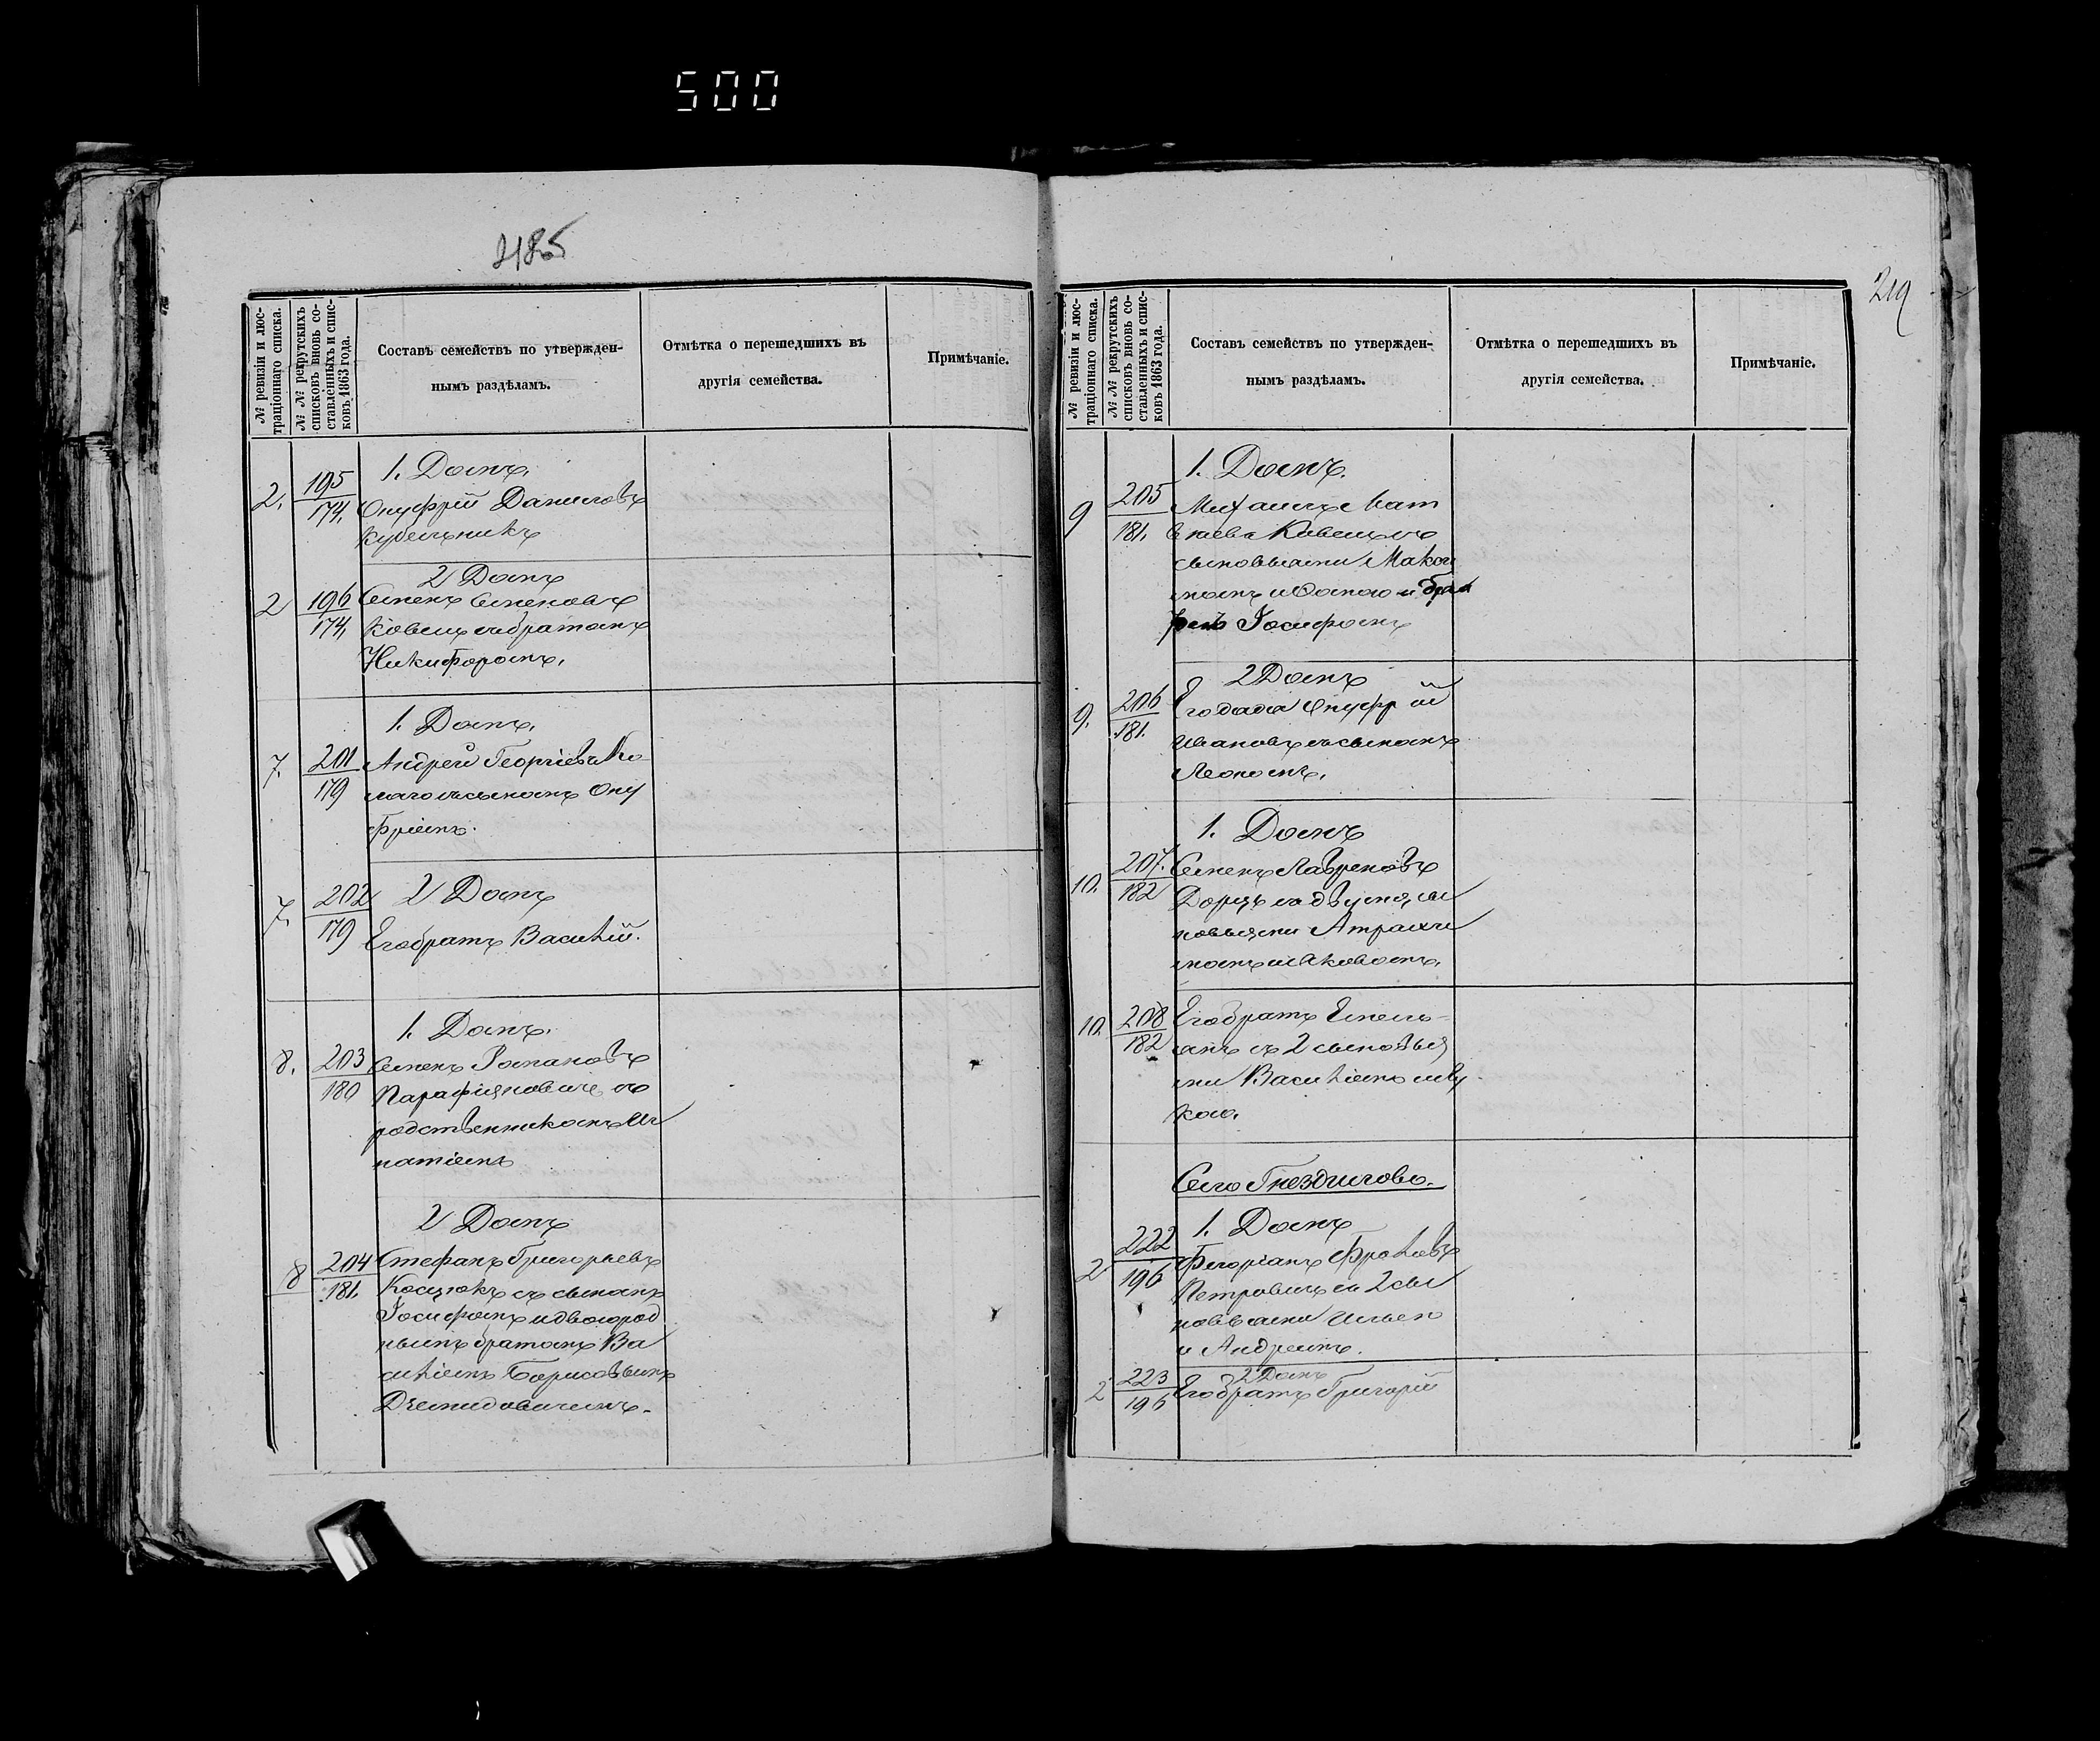 500
485
№ ревизіи и люс-
траціоннаго списка.
№ № рекрутскихъ
списковъ вновь со-
ставленныхъ и спис-
ковъ 1863 года.
Составъ семействъ по утвержден-
нымъ раздѣламъ.
Отмѣтка о перешедшихъ въ
другія семейства.
Примѣчаніе.
1. Домъ.
2. 195/174. Онуфрій Даниловъ
Кубельникъ
2 Домъ
2 196/174. Семенъ Семеновъ
Ковецъ съ братомъ
Никифоромъ.
1. Домъ.
7. 201/179 Андрей Георгіевъ
съ сыномъ Ону
фріемъ.
7. 202/179 2 Домъ
Его братъ Василій.
1. Домъ.
8. 203/180 Семенъ Романовъ
Парафіяновичъ съ
родственникомъ Иг
натіемъ
2 Домъ
8 204/181. Стефанъ Григорьевъ
Косцюкъ съ сыномъ
Іосифомъ и двоюрод
нымъ братомъ Ва
силіемъ Борисовымъ
Демидовичемъ.
219
№ ревизіи и люс-
траціоннаго списка.
№ № рекрутскихъ
списковъ вновь со-
ставленныхъ и спис-
ковъ 1863 года.
Составъ семействъ по утвержден-
нымъ раздѣламъ.
Отмѣтка о перешедшихъ въ
другія семейства.
Примѣчаніе.
1. Домъ.
9 205/181. Михаилъ Мат
вѣевъ Ковецъ съ
сыновьями Макси
момъ и Фомою и бра
томъ Іосифомъ
2 Домъ
9. 206/181. Его дядя Онуфрій
Ивановъ съ сыномъ
Леономъ.
1. Домъ
10. 207./182 Семенъ Лавреновъ
съ двумя сы
новьями
и Яковомъ.
10. 208/182 Его братъ Емель-
янъ съ 2 сыновья
ми Василіемъ и Лу
кою.
Село Гнездилово.
1. Домъ
2 222/196 Флоріанъ Фроловъ
Петровичъ съ 2 сы
новьями Ильею
и Андреемъ.
2 Домъ
2 223/196 Его братъ Григорій